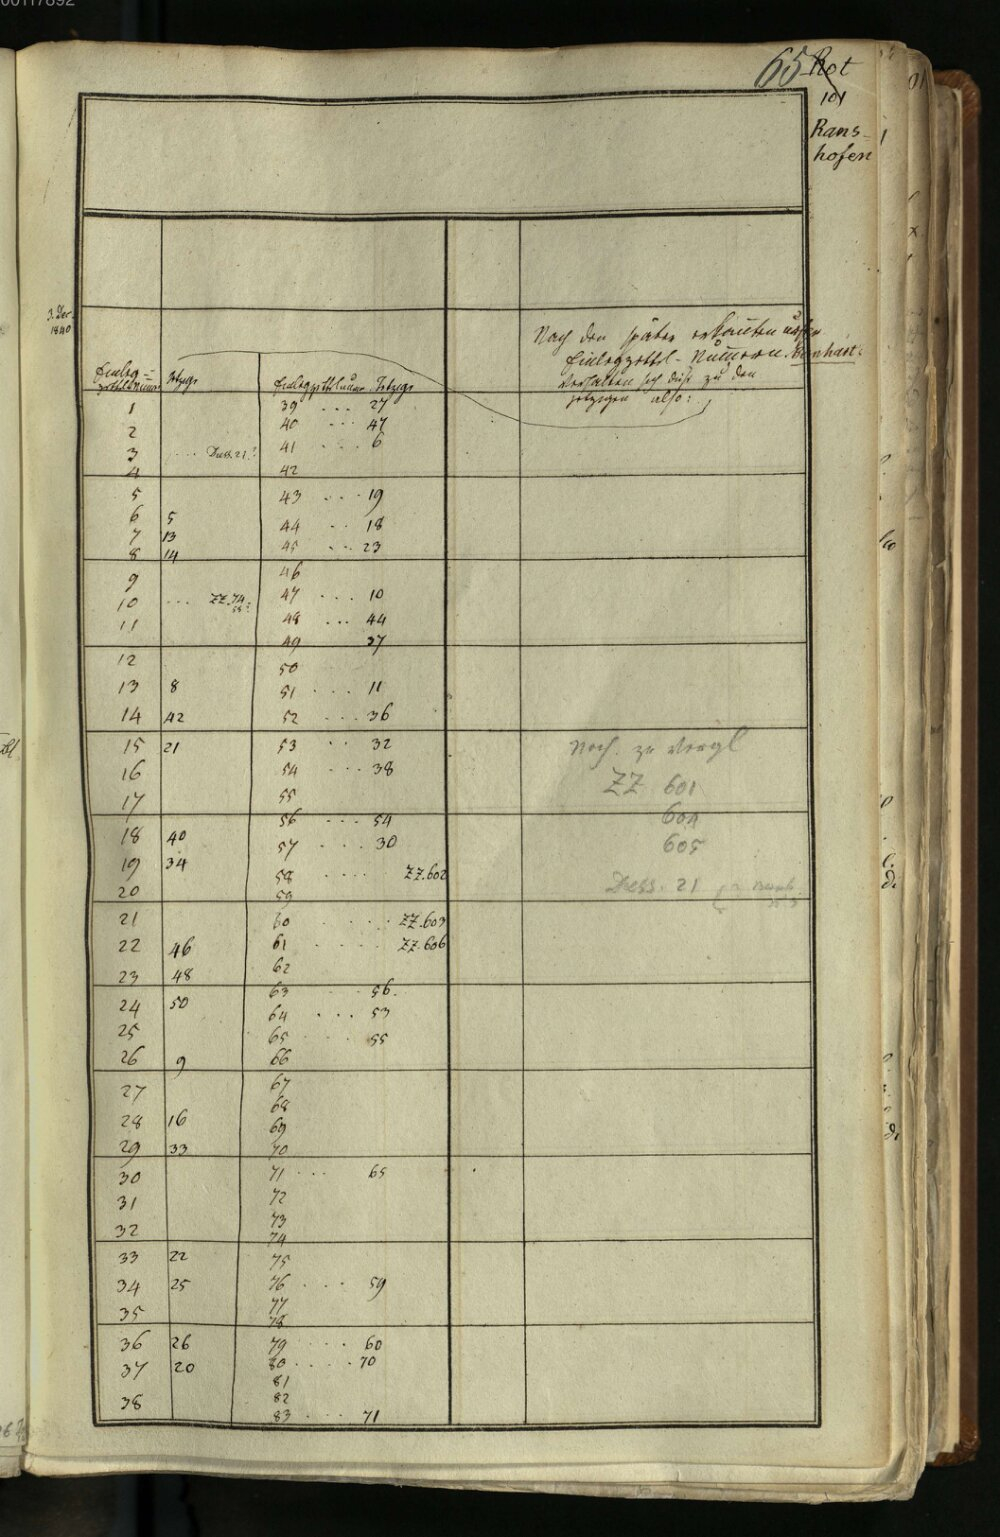 00117892
65 Rot
101
Rans-
hofen
3. Dec.
1840
Nach den später erkauften
Einlegzettel-Nummern
verhalten sich diese zu den
jetzigen also:
Einleg=
zettelnum Jetzige
Einlegzettelnum Jetzige
1
2
3 .... Duss. 21.?
4
5
6 5
7 13
8 14
9
10 ... ZZ. 74
11
12
13 8
14 42
15 21
16
17
18 40
19 34
20
21
22 46
23 48
24 50
25
26 9
27
28 16
29 33
30
31
32
33 22
34 25
35
36 26
37 20
38
39 ... 27
40 ... 47
41 .... 6
42
43 .... 19
44 ... 18
45 ... 23
46
47 .... 10
48 ... 44
49 37
50
51 .... 11
52 .... 36
53 .. 32
54 .... 38
55
56 .... 54
57 .... 30
58 .... ZZ. 602
59
60 ..... ZZ. 603
61 ..... ZZ. 606
62
63 .. 56.
64 .... 53
65 .... 55
66
67
68
69
70
71 ... 65
72
73
74
75
76 .... 59
77
78
79 .... 60
80 .... 70
81
82
83 .... 71
Noch zu Vergl
ZZ 601
604
605
Duss. 21